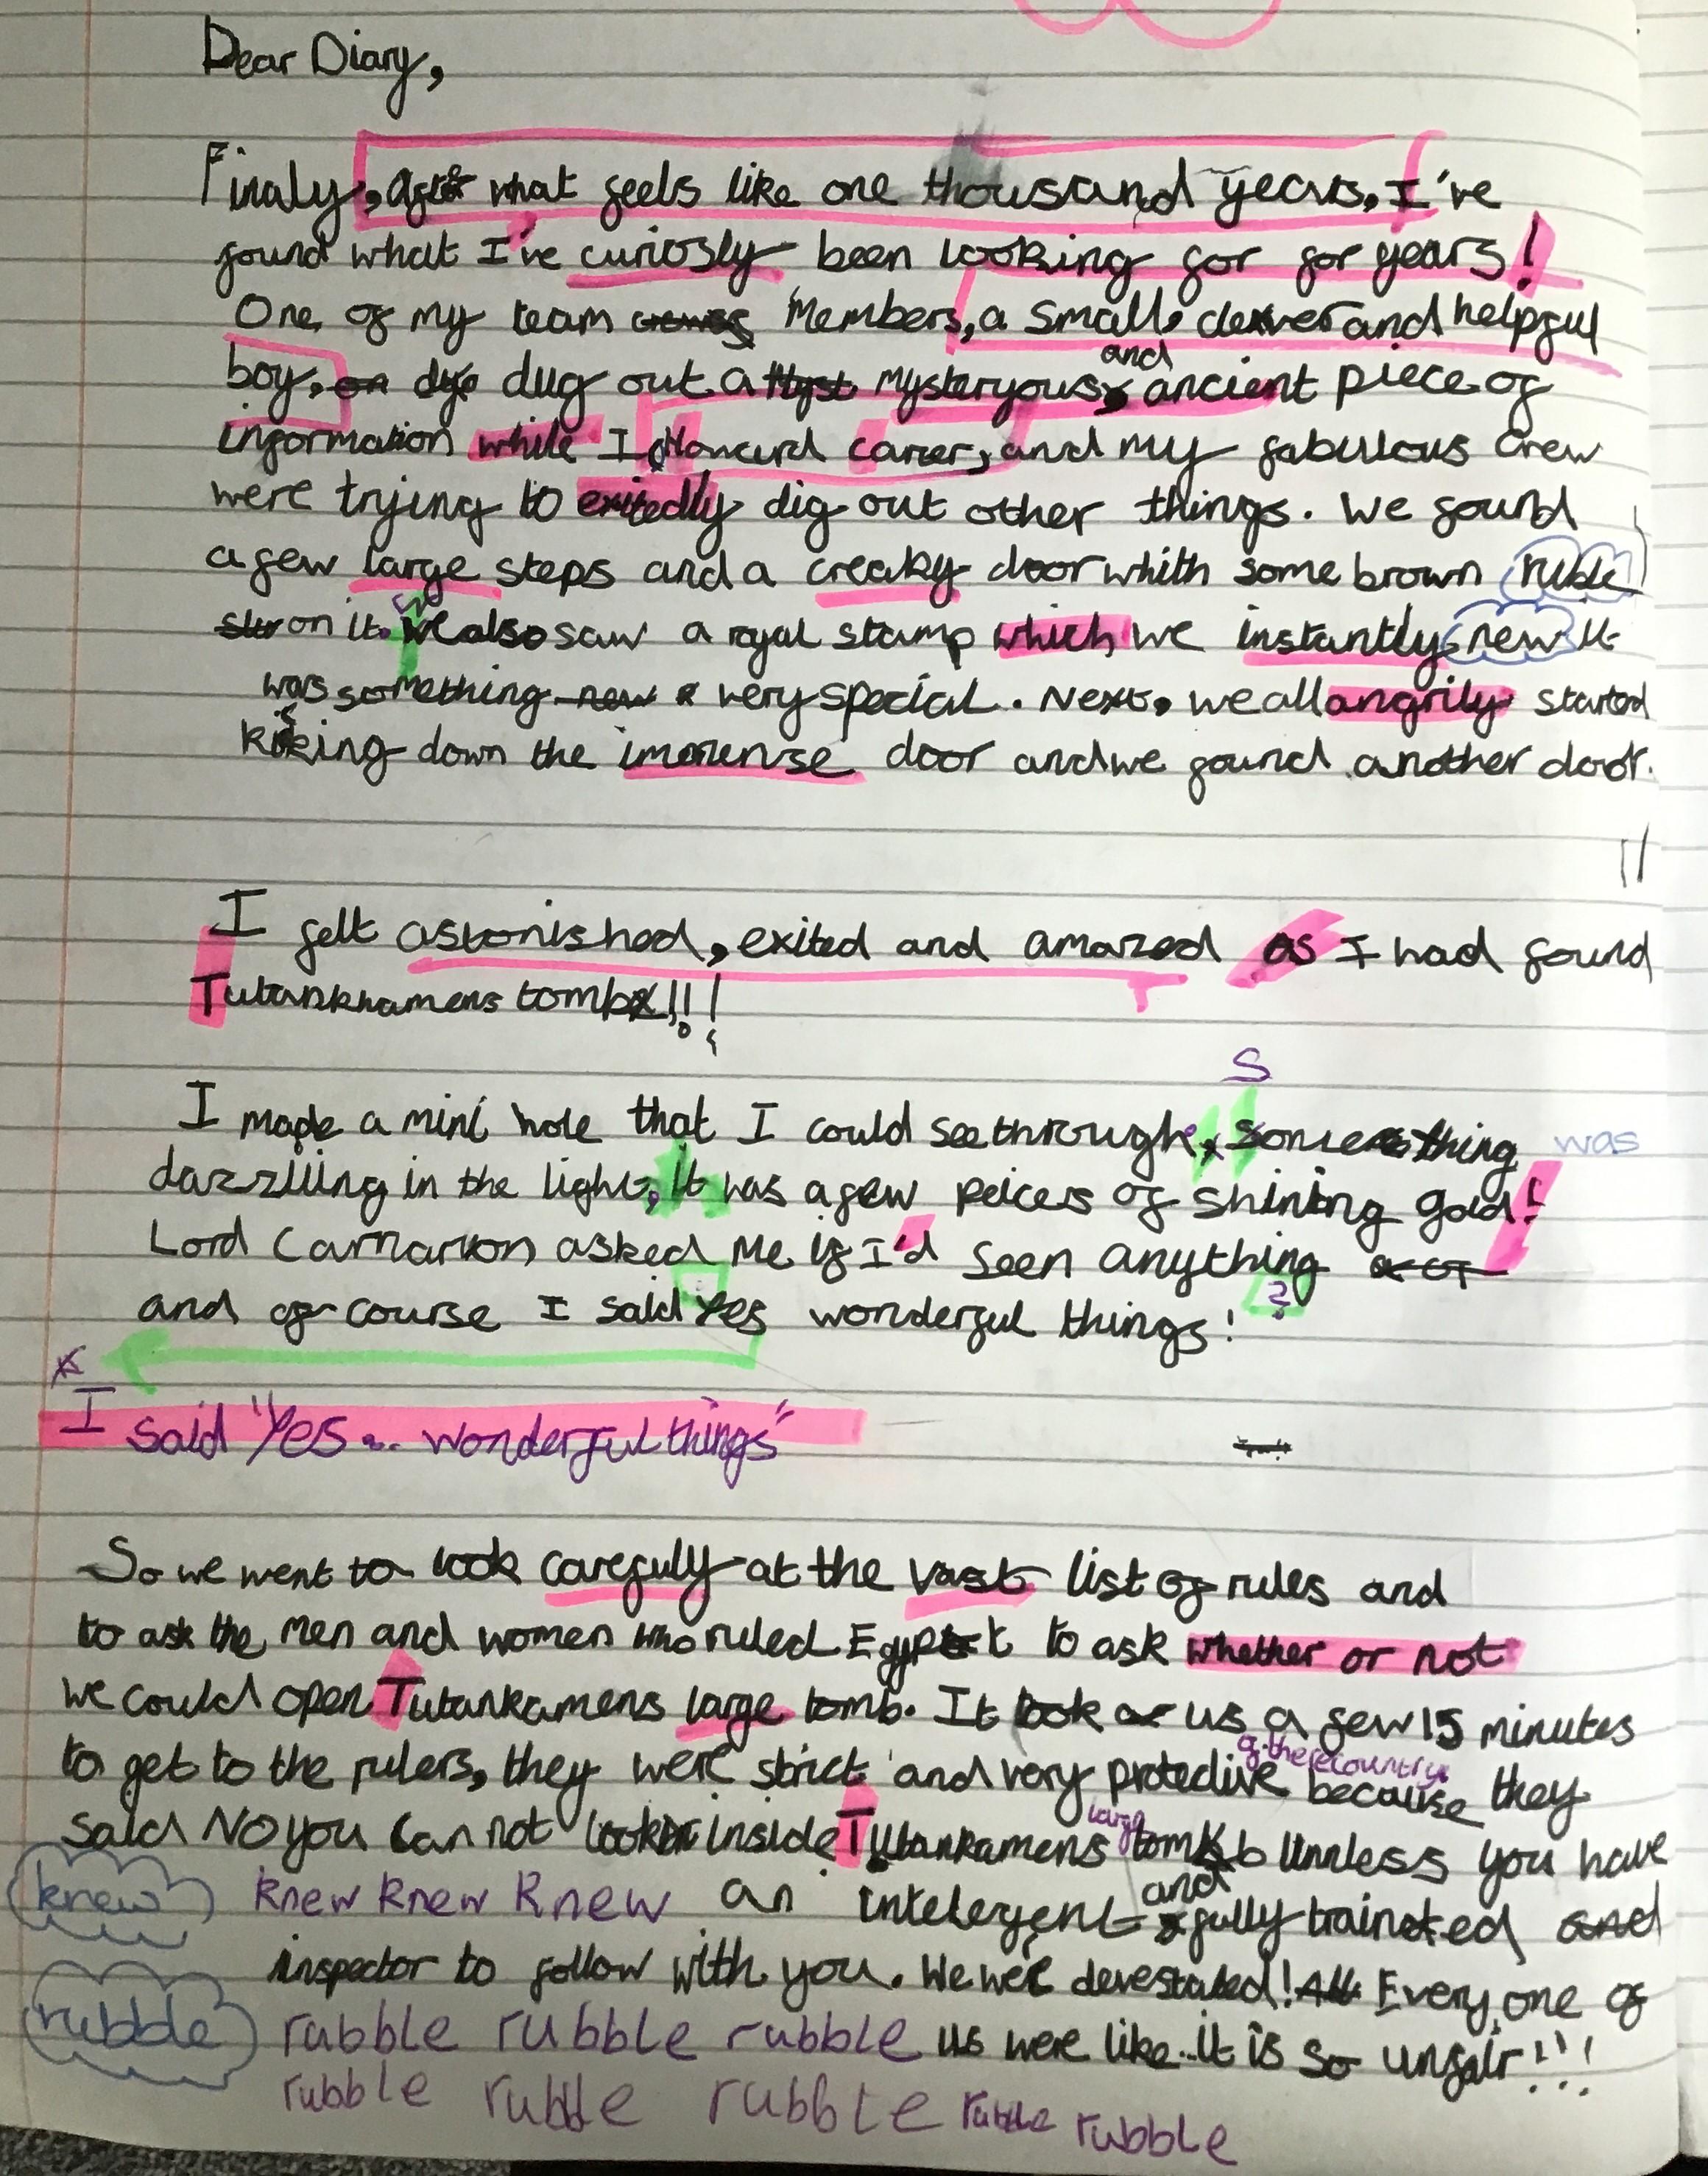 Dear Diary,
Finaly, after what feels like one thousand years, I've
found what I've curiosly been looking for for years!
One of my team members, a small, clever and helpful
boy, dug out a mysteryous and ancient piece of
information while I, Howard carter, and my fabulous crew
were trying to exitedly dig out other things. We found
a few large steps and a creaky door whith some brown ruble
on it. We also saw a royal stamp which we instantly new it
was something very special. Next, we all angrily started
kicking down the imense door and we found another door.
I felt astonished, exited and amazed as I had found
Tutankhamens tomb!!!
S
I made a mini hole that I could see through, something was
dazzliing in the light, it was a few peices of shining gold!
Lord Carnarvon asked me if I'd seen anything
?
and of course I said yes wonderful things!
I said "Yes... wonderful things"
So we went to look carefuly at the vast list of rules and
to ask the men and women who ruled Egypt to ask whether or not
we could open Tutankamens large tomb. It took us a few 15 minutes
to get to the rulers, they were strict and very protective of there country because they
said No you can not look inside Tutankamens large tomb Unnless you have
knew knew knew knew an intelegent and fully trainted
inspector to follow with you. We were devestated! Every one of
rubble rubble rubble rubble us were like.. it is so unfair!!!
rubble rubble rubble rubble rubble